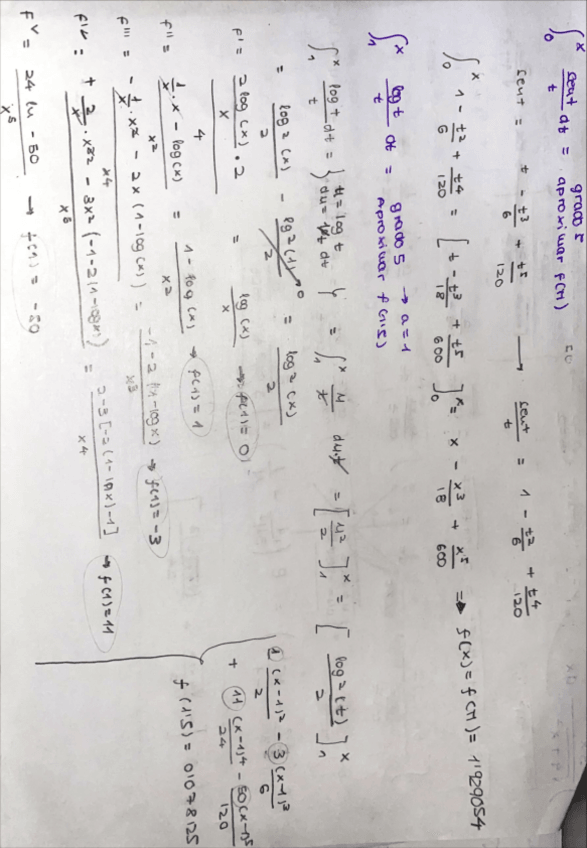 ∫₀ˣ sen t/t dt = grado 5 aproximar f(π)
sen t = t - t³/6 + t⁵/120 → sen t/t = 1 - t²/6 + t⁴/120
∫₀ˣ 1 - t²/6 + t⁴/120 = [t - t³/18 + t⁵/600]₀ˣ = x - x³/18 + x⁵/600 ⇒ f(x) = f(π) = 1'929054
∫₁ˣ log t/t dt = grado 5 → a = 1 aproximar f(1'5)
∫₁ˣ log t/t dt = { u = log t du = 1/t dt } = ∫₁ˣ u/t du·t = [u²/2]₁ˣ = [log²(t)/2]₁ˣ
= log²(x)/2 - log²(1)/2 → 0 = log²(x)/2
f' = 2 log(x)·2 / x / 4 = log(x)/x → f(1) = 0
f'' = 1/x · x - log(x) / x² = 1 - log(x) / x² → f(1) = 1
f''' = -1/x · x² - 2x(1 - log(x)) / x⁴ = -1 - 2(1x - log x) / x³ → f(1) = -3
f'''' = + 2/x · x³ - 3x²(-1 - 2(1 - log x)) / x⁶ = 2 - 3[-2(1 - ln x) - 1] / x⁴ → f(1) = 11
fⱽ = 24 ln - 50 / x⁵ → f(1) = -50
1(x-1)²/2 - 3(x-1)³/6
+ 11(x-1)⁴/24 - 50(x-1)⁵/120
f(1'5) = 0'078125